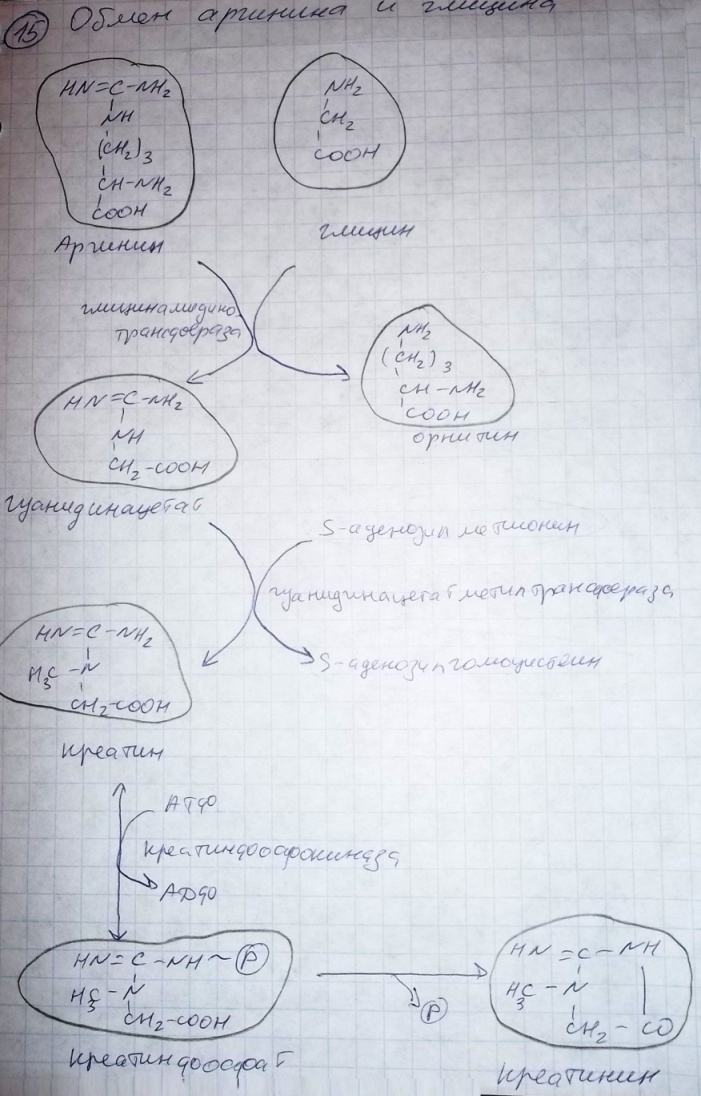 15 Обмен аргинина и глицина
HN=C-NH₂
NH
(CH₂)₃
CH-NH₂
COOH
Аргинин
NH₂
CH₂
COOH
глицин
глицинамидино-
трансфераза
NH₂
(CH₂)₃
CH-NH₂
COOH
орнитин
HN=C-NH₂
NH
CH₂-COOH
гуанидинацетат
S-аденозилметионин
гуанидинацетатметилтрансфераза
S-аденозилгомоцистеин
HN=C-NH₂
H₃C-N
CH₂-COOH
креатин
АТФ
креатинфосфокиназа
АДФ
HN=C-NH~P
H₃C-N
CH₂-COOH
креатинфосфат
P
HN=C-NH
H₃C-N
CH₂-CO
креатинин